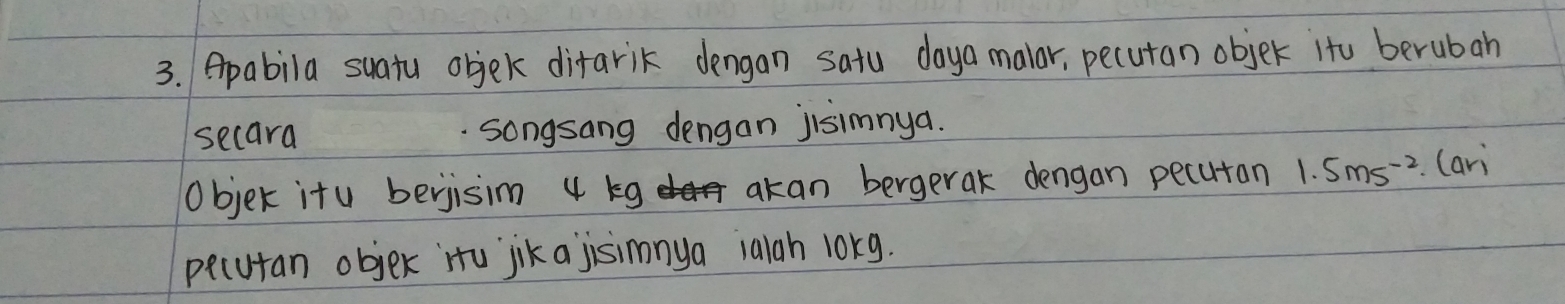 3. Apabila suatu objek ditarik dengan satu daya malar, pecutan objek itu berubah
secara . songsang dengan jisimnya.
Objek itu berjisim 4 kg dan akan bergerak dengan pecutan 1.5ms⁻². Cari
pecutan objek itu jika jisimnya ialah 10kg.